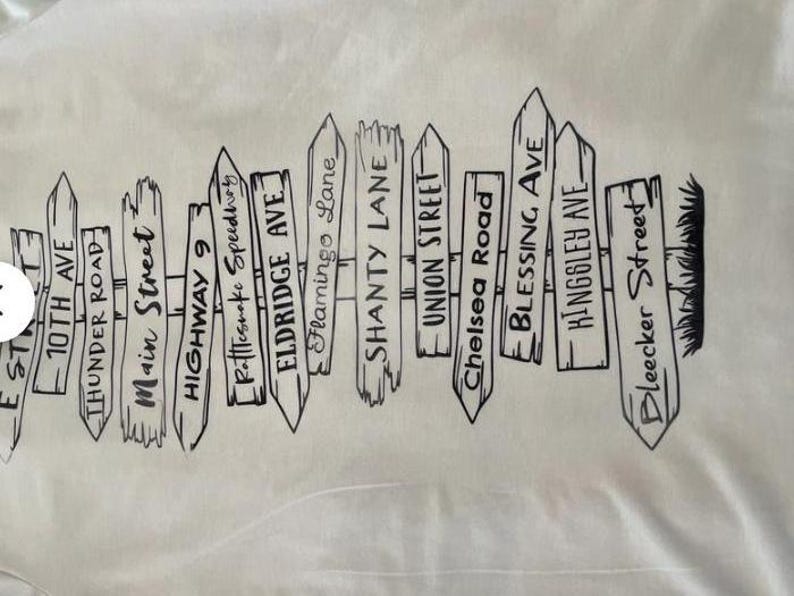 E STREET
10TH AVE
THUNDER ROAD
Main Street
HIGHWAY 9
Rattlesnake Speedway
ELDRIDGE AVE
Flamingo Lane
SHANTY LANE
UNION STREET
Chelsea Road
BLESSING AVE
KINGSLEY AVE
Bleecker Street